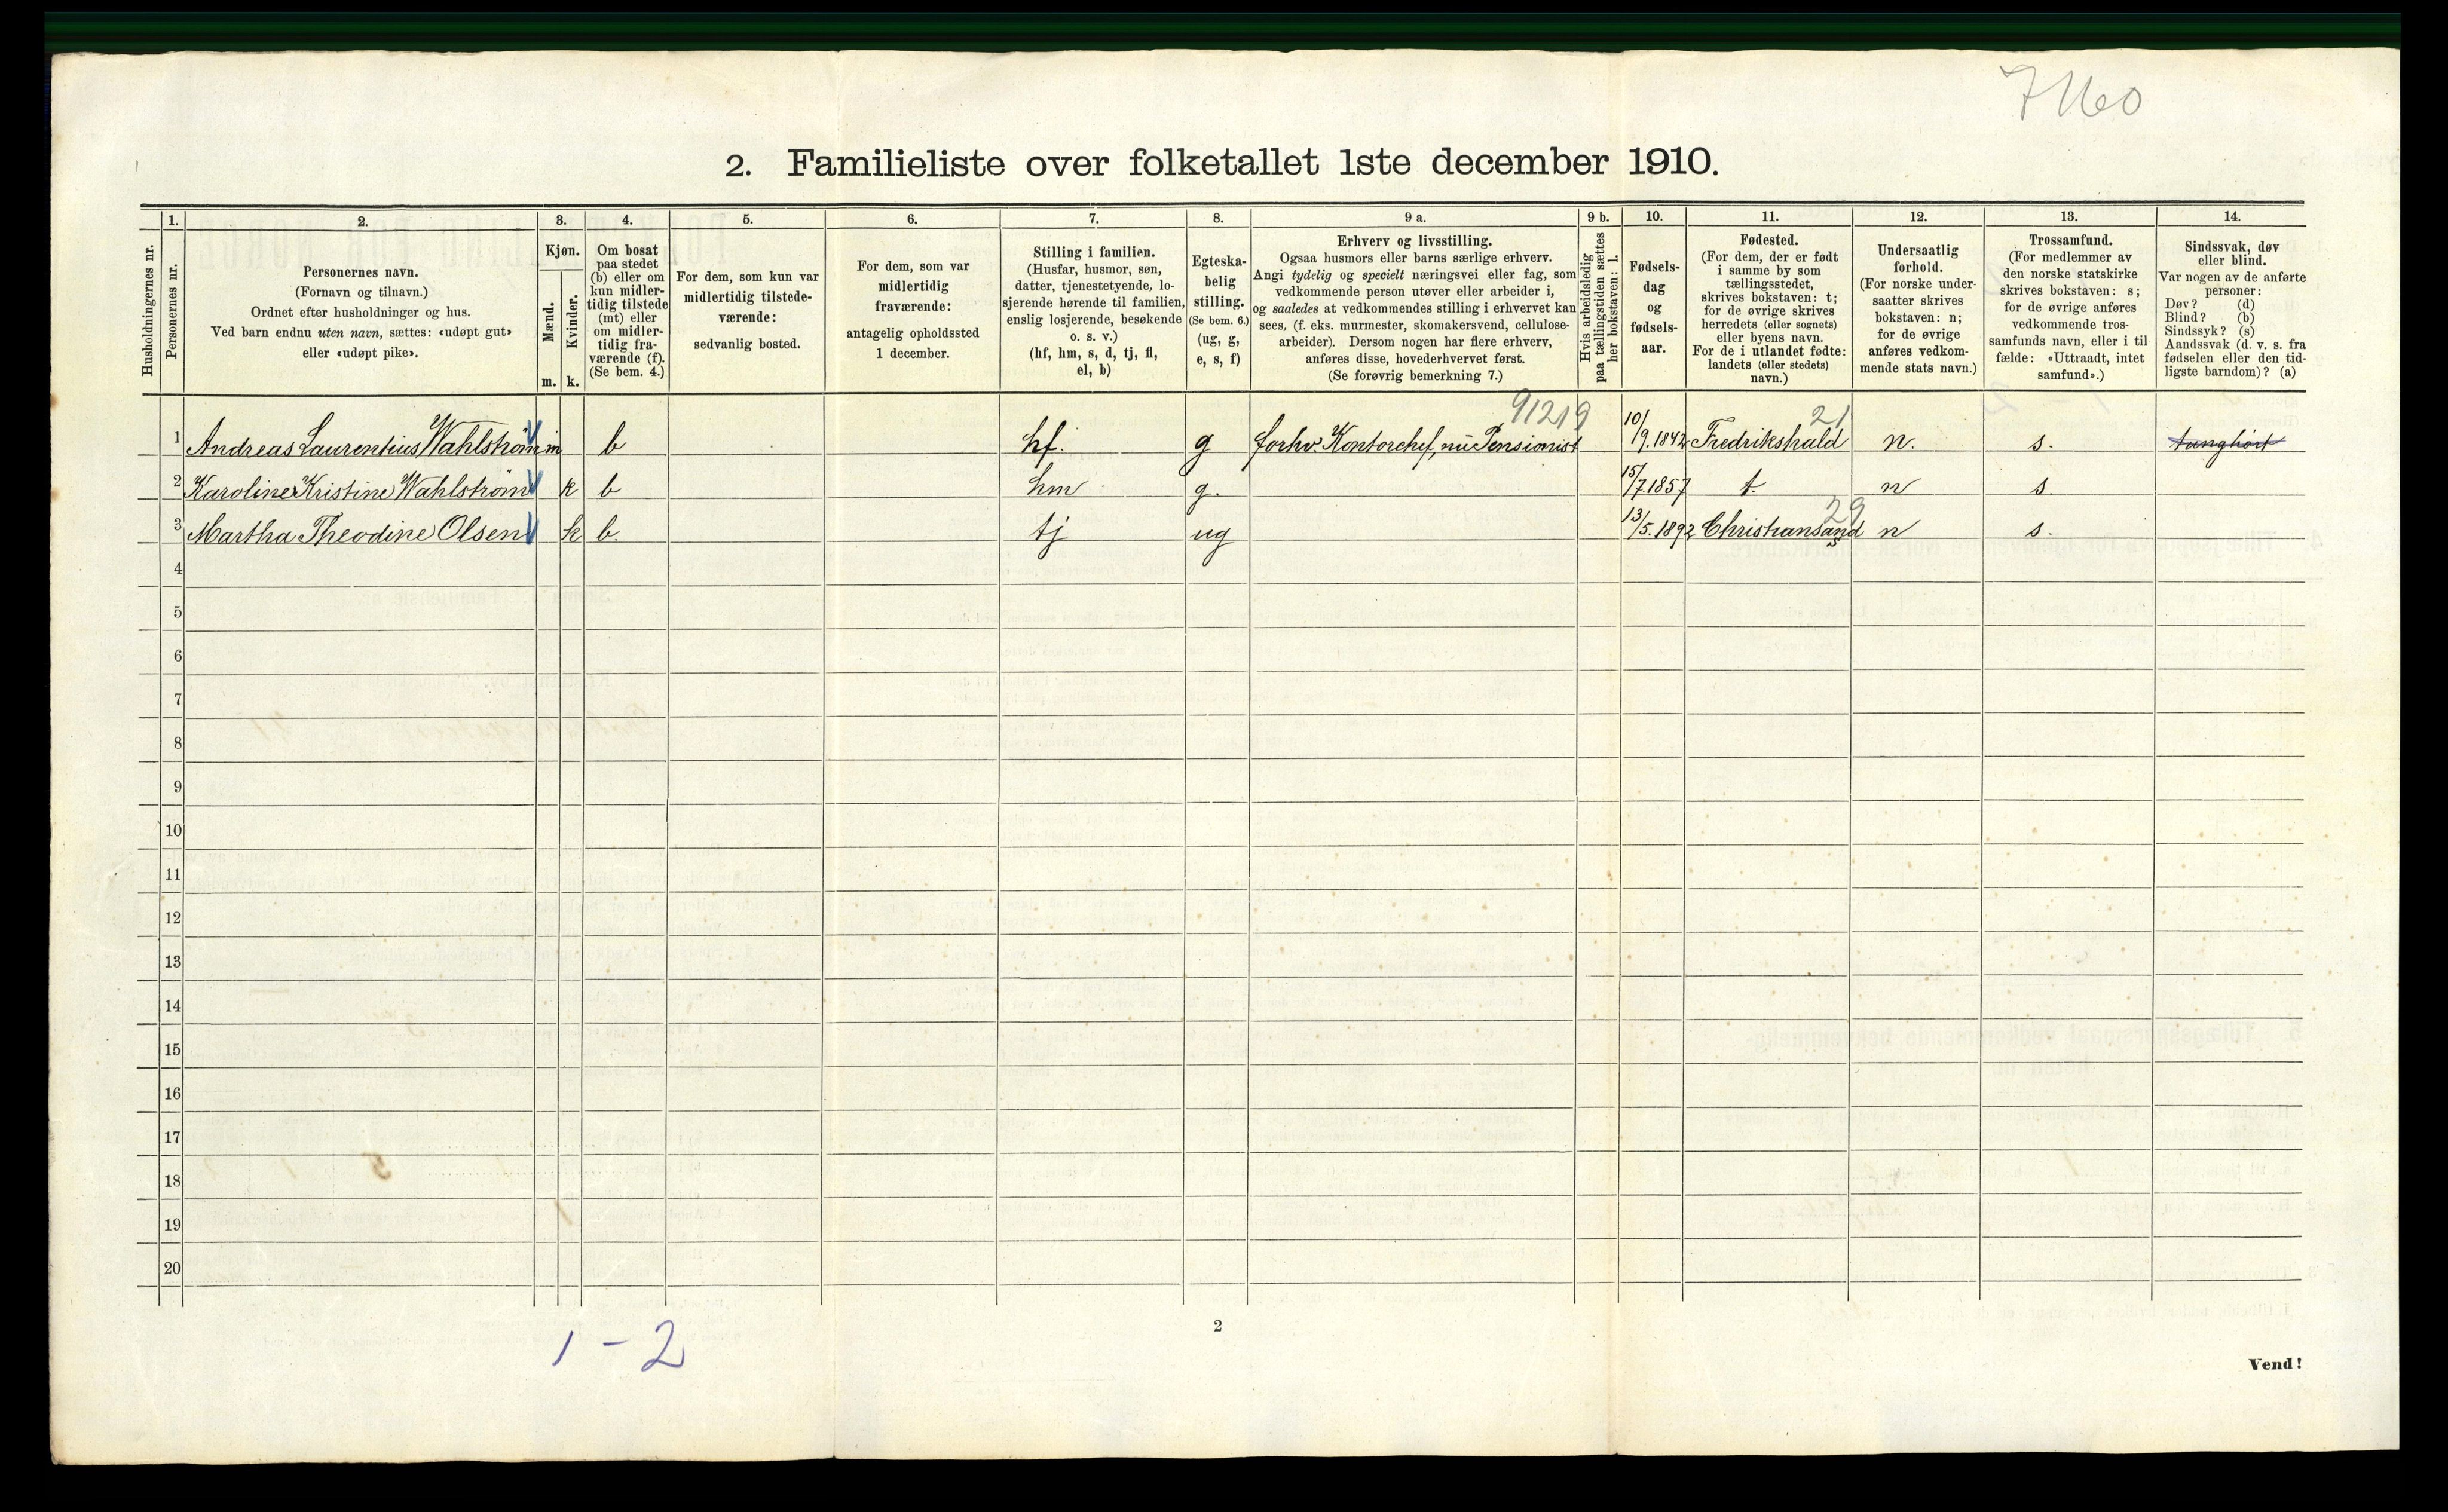 7160
2. Familieliste over folketallet 1ste december 1910.
Husholdningernes nr.
1.
Personernes nr.
2.
Personernes navn.
(Fornavn og tilnavn.)
Ordnet efter husholdninger og hus.
Ved barn endnu uten navn, sættes: «udøpt gut»
eller «udøpt pike».
3.
Kjøn.
Mænd.
Kvinder.
m. k.
4.
Om bosat
paa stedet
(b) eller om
kun midler-
tidig tilstede
(mt) eller
om midler-
tidig fra-
værende (f).
(Se bem. 4.)
5.
For dem, som kun var
midlertidig tilstede-
værende:
sedvanlig bosted.
6.
For dem, som var
midlertidig
fraværende:
antagelig opholdssted
1 december.
7.
Stilling i familien.
(Husfar, husmor, søn,
datter, tjenestetyende, lo-
sjerende hørende til familien,
enslig losjerende, besøkende
o. s. v.)
(hf, hm, s, d, tj, fl,
el, b)
8.
Egteska-
belig
stilling.
(Se bem. 6.)
(ug, g,
e, s, f)
9 a.
Erhverv og livsstilling.
Ogsaa husmors eller barns særlige erhverv.
Angi tydelig og specielt næringsvei eller fag, som
vedkommende person utøver eller arbeider i,
og saaledes at vedkommendes stilling i erhvervet kan
sees, (f. eks. murmester, skomakersvend, cellulose-
arbeider). Dersom nogen har flere erhverv,
anføres disse, hovederhvervet først.
(Se forøvrig bemerkning 7.)
9 b.
Hvis arbeidsledig
paa tællingstiden sættes
her bokstaven: l.
10.
Fødsels-
dag
og
fødsels-
aar.
11.
Fødested.
(For dem, der er født
i samme by som
tællingsstedet,
skrives bokstaven: t;
for de øvrige skrives
herredets (eller sognets)
eller byens navn.
For de i utlandet fødte:
landets (eller stedets)
navn.)
12.
Undersaatlig
forhold.
(For norske under-
saatter skrives
bokstaven: n;
for de øvrige
anføres vedkom-
mende stats navn.)
13.
Trossamfund.
(For medlemmer av
den norske statskirke
skrives bokstaven: s;
for de øvrige anføres
vedkommende tros-
samfunds navn, eller i til
fælde: «Uttraadt, intet
samfund».)
14.
Sindssvak, døv
eller blind.
Var nogen av de anførte
personer:
Døv? (d)
Blind? (b)
Sindssyk? (s)
Aandssvak (d. v. s. fra
fødselen eller den tid-
ligste barndom)? (a)
91219 21
1 Andreas Laurentius Wahlström m b hf. g forhv. Kontorchef, nu Pensionist 10/9.1842 Fredrikshald n. s. tunghørt
2 Karoline Kristine Wahlström k b hm g. 15/7.1857 t. n s.
29
3 Martha Theodine Olsen k b. tj ug 13/5.1892 Christiansand s n s.
4
5
6
7
8
9
10
11
12
13
14
15
16
17
18
19
20
1 - 2
2
Vend!